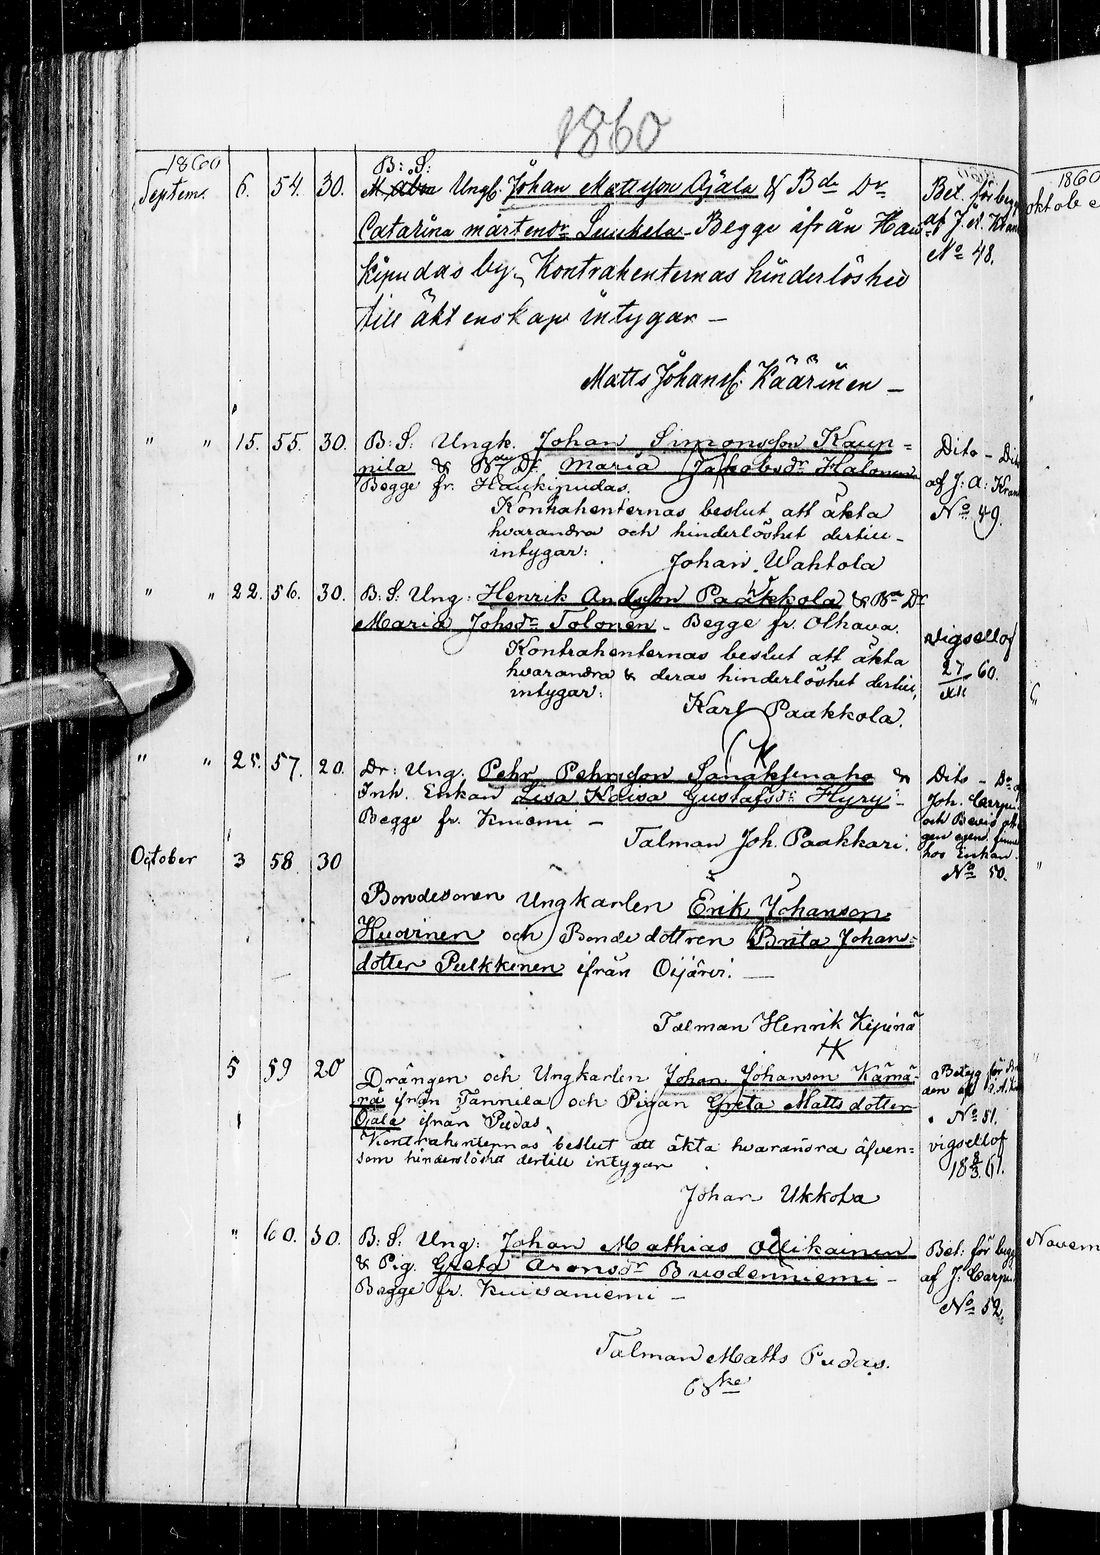 1860
1860
Septem. 6. 54. 30. B: S:
Ungk. Johan Mattsson Ojala & Bd Dr
Catarina mårtensdr Luukela - Begge ifrån Hau
kipudas by, Kontrahenternas hinderlöshet
till äktenskap intygar —
Matts Johans. Käärinen —
Bet. för begge
af J. A. Kran
No 48.
" " 15. 55. 30. B: S: Ungk. Johan Simonsson Kaup-
pila & Bdn Dr. Maria Jakobsdr Halonen
Begge fr. Haukipudas.
Kontrahenternas beslut att äkta
hvarandra och hinderlöshet dertill
intygar:
Johan Wahtola
Dito - Dito
af J: A: Kran
No 49.
" " 22. 56. 30. B: S: Ung: Henrik Andsson Paakkola & Bn Dr
Maria Johsdr Tolonen - Begge fr. Olhava.
Kontrahenternas beslut att äkta
hvarandra & deras hinderlöshet dertill,
intygar:
Karl Paakkola.
vigsellof
27/XII 60.
" " 25. 57. 20. Dr: Ung. Pehr Pehrsson Sanaksenaho &
Inh. Enkan Lisa Kaisa Gustafsdr Hyry -
Begge fr. Kuiemi —
Talman Joh. Paakkari.
Dito - Do af
Joh. Carpe
och Bevis att
gen egend. finnes
hos Enkan.
No 50.
October 3 58 30
Bondesonen Ungkarlen Erik Johanson
Huovinen och Bonde dottren Brita Johans=
dotter Pulkkinen ifrån Oijärvi. —
Talman Henrik Kipinä
5 59 20 Drängen och Ungkarlen Johan Johanson Kämä-
rä ifrån Tannila och Pigan Greta Matts dotter
Ojala ifrån Pudas,
Kontrahenternas beslut att äkta hvarandra äfven=
som hinderslöshet dertill intygar
Johan Ukkola
Betyg för
den af
No 51.
vigsellof
18 8/3 61.
" 60. 30. B: S: Ung: Johan Mathias Ollikainen
& Pig. Greta Aronsdr Buodenniemi -
Begge fr. Kuivaniemi —
Talman Matts Pudas.
Bet: för begge
af J: Carpe
No 52.
1860
oktobe
Novem